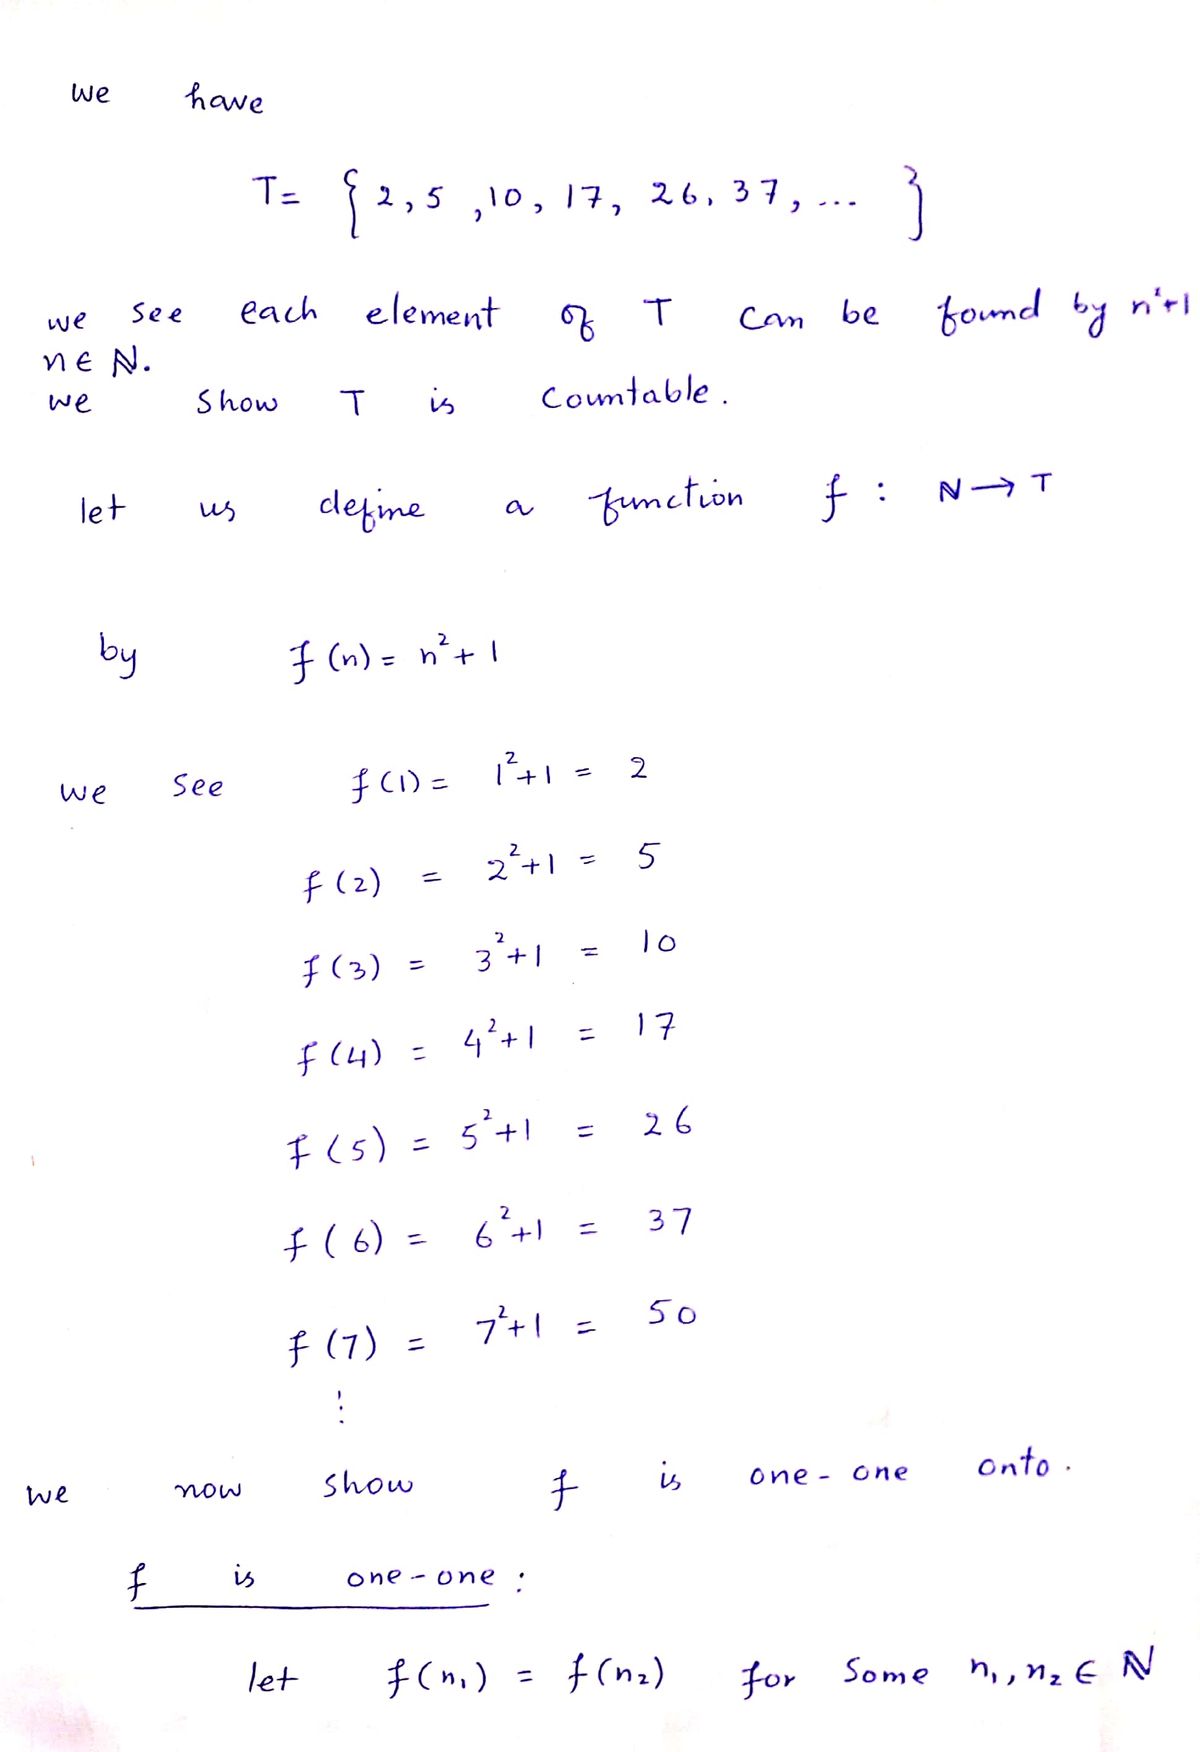 we have
T = { 2, 5, 10, 17, 26, 37, ... }
we see each element of T can be found by n²+1
n ∈ ℕ.
we show T is countable.
let us define a function f : ℕ → T
by f(n) = n² + 1
we see f(1) = 1²+1 = 2
f(2) = 2²+1 = 5
f(3) = 3²+1 = 10
f(4) = 4²+1 = 17
f(5) = 5²+1 = 26
f(6) = 6²+1 = 37
f(7) = 7²+1 = 50
⋮
we now show f is one-one onto.
f is one-one :
let f(n₁) = f(n₂) for some n₁, n₂ ∈ ℕ